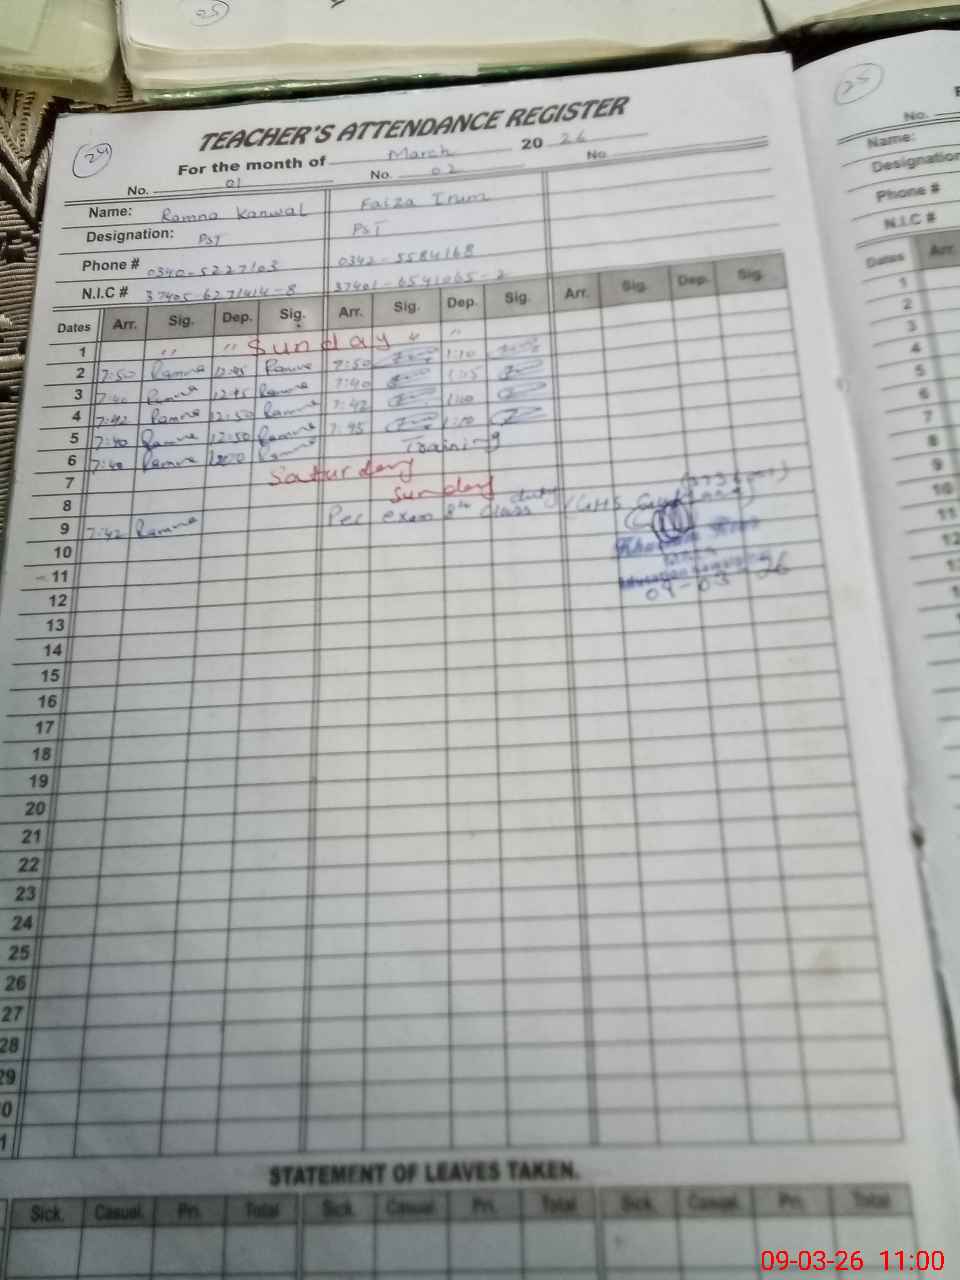 25
24
TEACHER'S ATTENDANCE REGISTER
For the month of March 20 26
No. 01 No. 02 No
Name: Ramna Kanwal Faiza Irum
Designation: PST PST
Phone # 0340-5227103 0342-5584168
N.I.C # 37405-6271414-8 37401-6541065-2
Dates Arr. Sig. Dep. Sig. Arr. Sig. Dep. Sig. Arr. Sig. Dep. Sig.
1 " " Sunday " "
2 7:50 Ramna 12:45 Ramna 7:50 1:10
3 7:40 Ramna 12:45 Ramna 7:40 1:15
4 7:42 Ramna 12:50 Ramna 7:42 1:10
5 7:40 Ramna 12:50 Ramna 7:45 1:10
6 7:40 Ramna Ramna Training
7 Saturday
8 Sunday
9 7:42 Ramna Pec exam 8th class duty GHS
10
11
12
13
14
15
16
17
18
19
20
21
22
23
24
25
26
27
28
29
0
1
09-03-26
STATEMENT OF LEAVES TAKEN.
Sick. Casual. Pri. Total Sick. Casual Pri. Total Sick. Casual. Pri. Total
25
No.
Name:
Designation
Phone #
N.I.C #
Dates Arr.
1
2
3
4
5
6
7
8
9
10
11
12
09-03-26 11:00